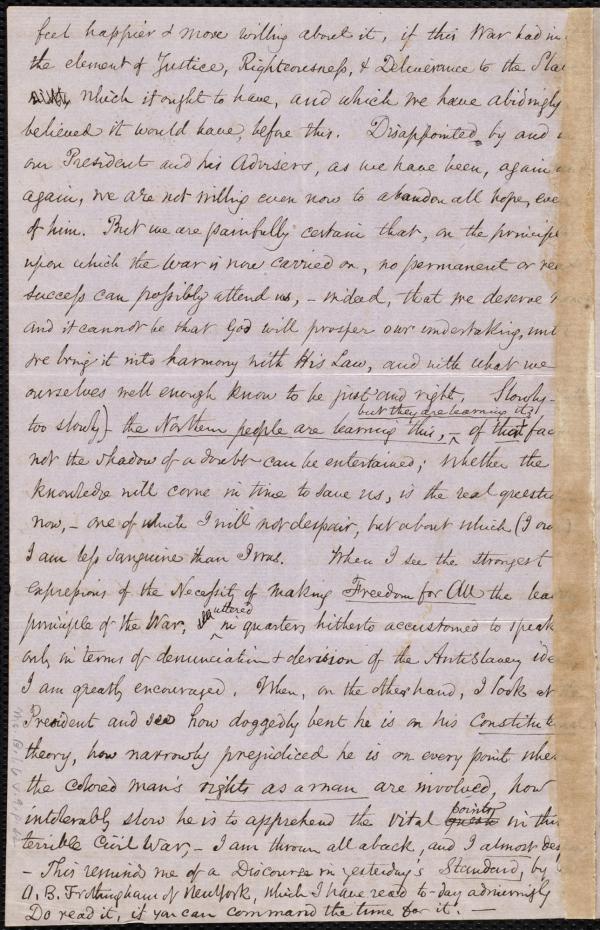 feel happier & more willing about it, if this War had in
the element of Justice, Righteousness, & Deliverance to the Sla
which it ought to have, and which we have abidingly
believed it would have, before this. Disappointed by and
our President and his Advisers, as we have been, again
again, we are not willing even now to abandon all hope, eve
of him. But we are painfully certain that, on the principl
upon which the War is now carried on, no permanent or rea
success can possibly attend us, – indeed, that we deserve
and it cannot be that God will prosper our undertaking, unt
we bring it into harmony with His Law, and with what we
ourselves well enough know to be just and right. Slowly –
but they are learning it;
too slowly) – the Northern people are learning this, – of that fac
not the shadow of a doubt can be entertained; whether the
knowledge will come in time to save us, is the real questi
now, – one of which I will not despair, but about which (I ow
I am less sanguine than I was. When I see the strongest
expressions of the Necessity of making Freedom for All the lea
uttered
principle of the War, in quarters hitherto accustomed to speak
only in terms of denunciation & derision of the Antislavery ide
I am greatly encouraged. When, on the other hand, I look at
President and see how doggedly bent he is on his Constitut
theory, how narrowly prejudiced he is on every point whe
the colored man's rights as a man are involved, how
points
intolerably slow he is to apprehend the vital in this
terrible Civil War, – I am thrown all aback, and I almost des
– This reminds me of a Discourse in yesterday's Standard, by
O. B. Frothingham of New York, which I have read to-day admiringly
Do read it, if you can command the time for it. –